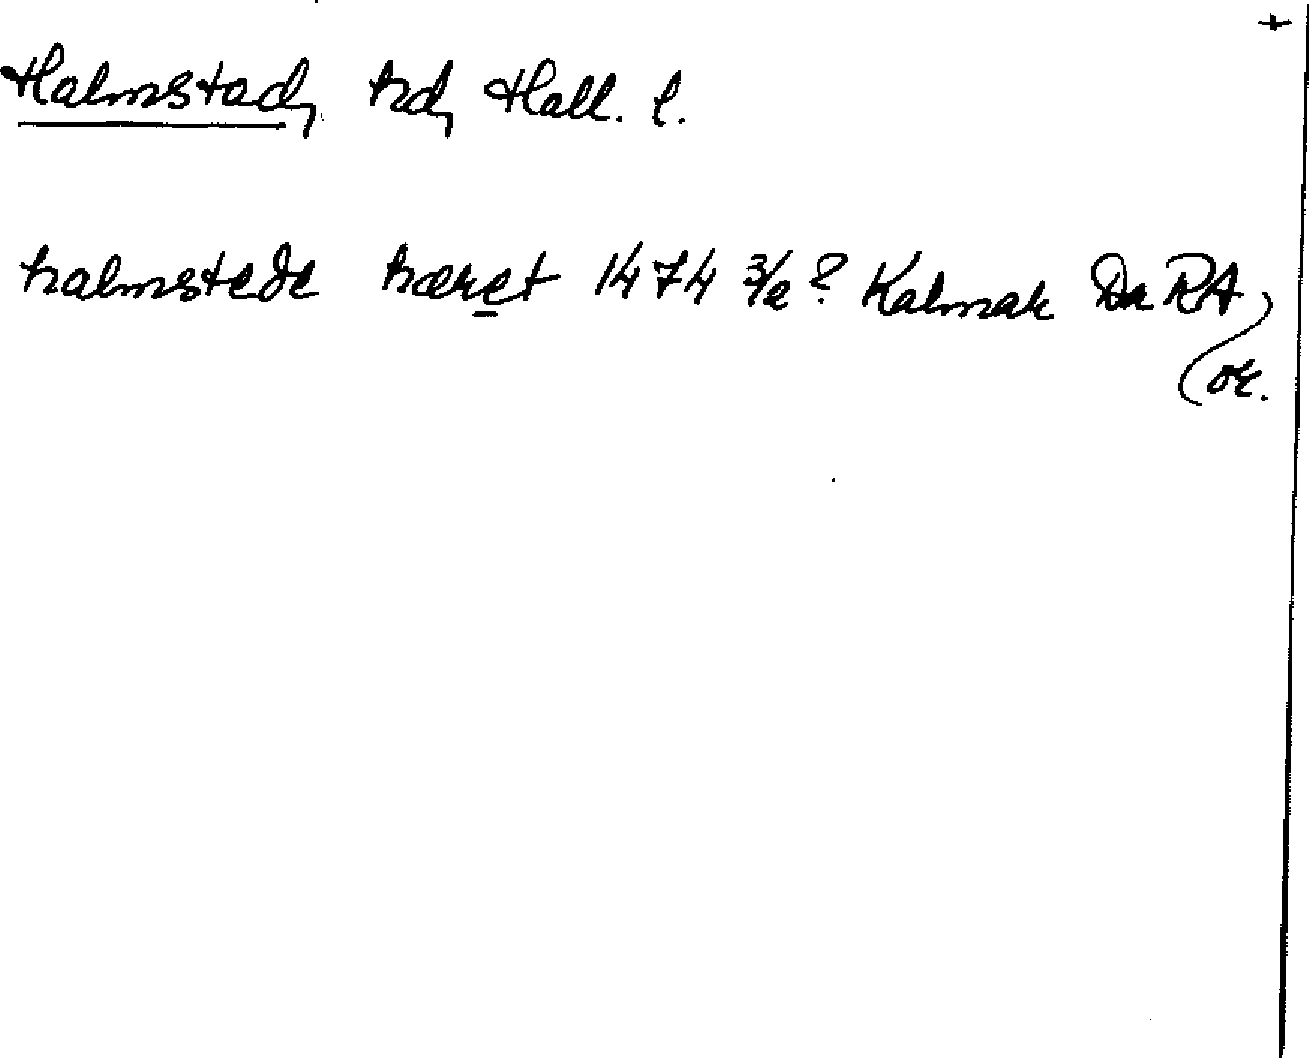 +
Halmstad, hd, Hall. l.
halmstede hæret 1474 3/e? Kalmar Da RA,
or.